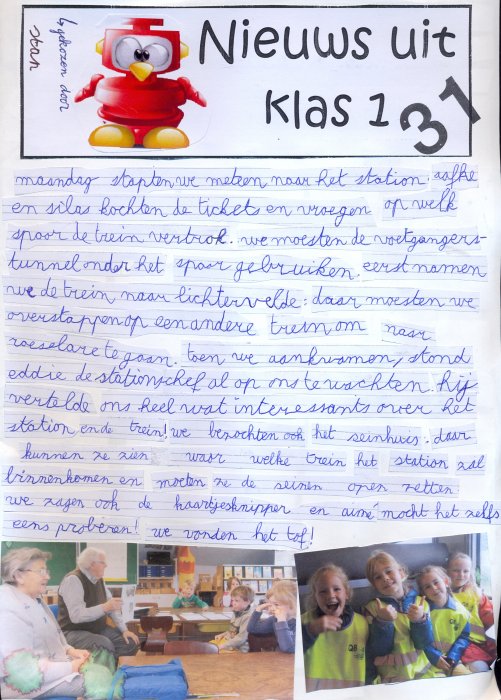 Nieuws uit
klas 1
31
bijgekozen door
stan
maandag stapten we meteen naar het station. aafke
en silas kochten de tickets en vroegen op welk
spoor de trein vertrok. we moesten de voetgangers-
tunnel onder het spoor gebruiken. eerst namen
we de trein naar lichtervelde: daar moesten we
overstappen op een andere trein om naar
roeselare te gaan. toen we aankwamen, stond
eddie de stationschef al op ons te wachten. hij
vertelde ons heel wat interessants over het
station en de trein! we bezochten ook het seinhuis. daar
kunnen ze zien waar welke trein het station zal
binnenkomen en moeten ze de seinen open zetten.
we zagen ook de kaartjesknipper en aimé mocht het zelfs
eens proberen! we vonden het tof!